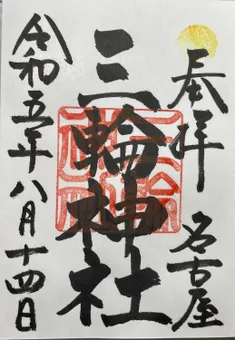 奉拝
名古屋
三輪神社
令和五年八月十四日